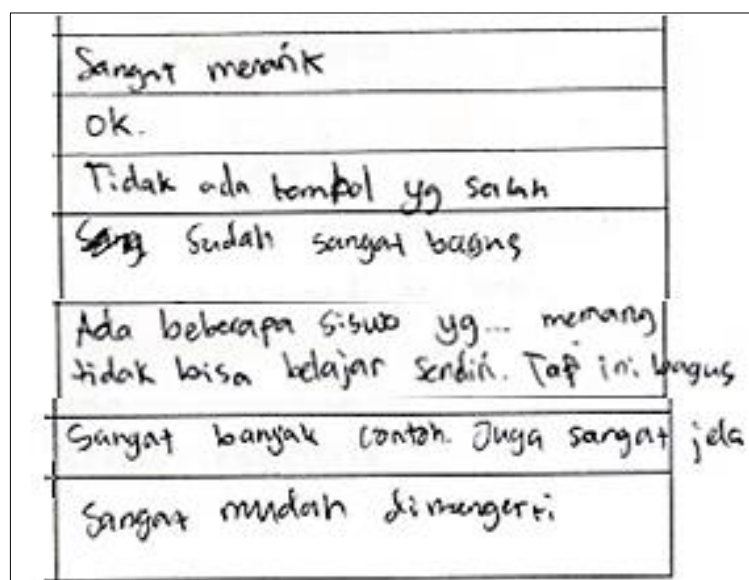 Sangat menarik
Ok.
Tidak ada tombol yg salah
Sudah sangat bagus
Ada beberapa siswa yg... memang
tidak bisa belajar sendiri. Tapi ini bagus
Sangat banyak contoh. Juga sangat jela
Sangat mudah dimengerti